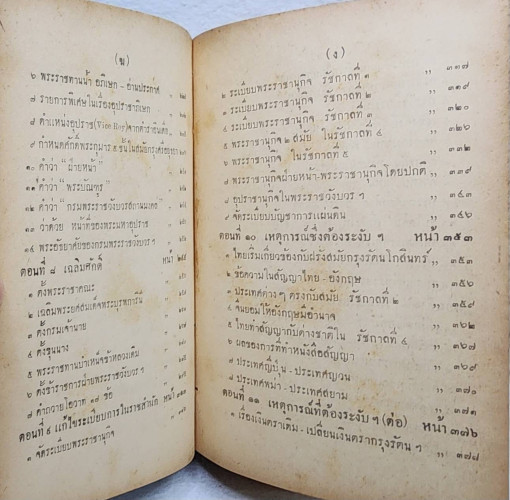 (ฆ)
๖ พระราชทานน้ำ อภิเษก - อ่านประกาศ ,,
๗ รายการพิเศษในเรื่องอุปราชาภิเษก ,,
๘ ตำแหน่งอุปราช (Vice Roy) จากตำราอินเดีย ,,
๙ กำหนดศักดิ์พระกุมาร ๕ ชั้นในสมัยกรุงศรีอยุธยา
๑๐ คำว่า “ฝ่ายหน้า” ,,
๑๑ คำว่า “พระบัณฑูร” ,,
๑๒ คำว่า “กรมพระราชวังบวรสถานมงคล” ,,
๑๓ ว่าด้วย หน้าที่ของพระมหาอุปราช ,,
๑๔ พระอัธยาศัยของกรมพระราชวังบวร ฯ ,,
ตอนที่ ๘ เฉลิมศักดิ์ หน้า
๑ ตั้งพระราชาคณะ ,,
๒ เฉลิมพระยศสมเด็จพระบุรพการินี ,,
๓ ตั้งกรมเจ้านาย ,,
๔ ตั้งขุนนาง ,,
๕ พระราชทานบำเหน็จข้าหลวงเดิม ,,
๖ ตั้งข้าราชการฝ่ายพระราชวังบวร ฯ ,,
๗ คำถวายโอวาท ๑๐ ข้อ ,,
ตอนที่ ๙ แก้ไขระเบียบการในราชสำนัก หน้า
๑ จัดระเบียบพระราชานุกิจ ,,
(ง)
๒ ระเบียบพระราชานุกิจ รัชกาลที่ ๑ ,, ๓๑๗
๓ ระเบียบพระราชานุกิจ รัชกาลที่ ๒ ,, ๓๑๙
๔ ระเบียบพระราชานุกิจ รัชกาลที่ ๓ ,, ๓๒๐
๕ พระราชานุกิจ ๒ สมัย ในรัชกาลที่ ๔ ,, ๓๒๖
๖ พระราชานุกิจ ในรัชกาลที่ ๕ ,, ๓๓๒
๗ พระราชานุกิจฝ่ายหน้า - พระราชานุกิจโดยปกติ
๘ อุปราชานุกิจในพระราชวังบวร ฯ ,, ๓๓๙
๙ จัดระเบียบบัญชาการแผ่นดิน ,, ๓๔๖
ตอนที่ ๑๐ เหตุการณ์ซึ่งต้องระงับ ฯ หน้า ๓๕๓
๑ ไทยเริ่มเกี่ยวข้องกับฝรั่งสมัยกรุงรัตนโกสินทร์ ,, ๓๕๓
๒ ข้อความในสัญญาไทย - อังกฤษ ,, ๓๕๕
๓ ประเทศต่าง ๆ ตรงกับสมัย รัชกาลที่ ๒ ,, ๓๕๙
๔ จีนยอมให้อังกฤษมีอำนาจ ,,
๕ ไทยทำสัญญากับต่างชาติใน รัชกาลที่ ๔ ,, ๓๖๒
๖ ผลของการที่ทำหนังสือสัญญา ,, ๓๖๙
๗ ประเทศญี่ปุ่น - ประเทศญวน ,, ๓๗๐
๘ ประเทศพม่า - ประเทศสยาม ,, ๓๗๑
ตอนที่ ๑๑ เหตุการณ์ที่ต้องระงับ ฯ (ต่อ) หน้า ๓๗๖
๑ เรื่องเงินตราเดิม - เปลี่ยนเงินตรากรุงรัตน ฯ ,, ๓๗๗